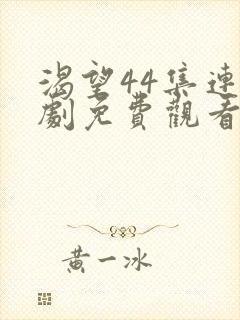 渴望44集連
劇免費觀看
黃一冰